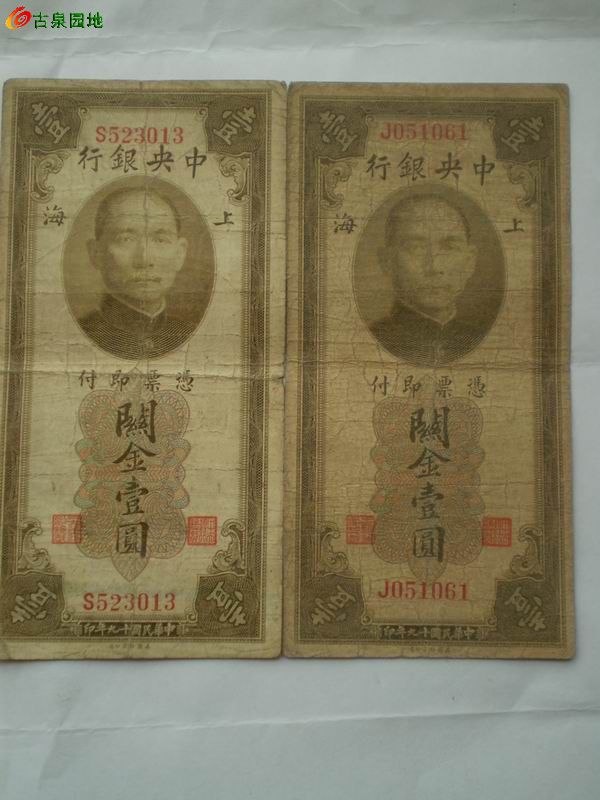 古泉园地
壹 壹
S523013
中央銀行
上海
憑票即付
關金壹圓
S523013
壹 壹
中華民國十九年印
壹 壹
J051061
中央銀行
上海
憑票即付
關金壹圓
J051061
壹 壹
中華民國十九年印